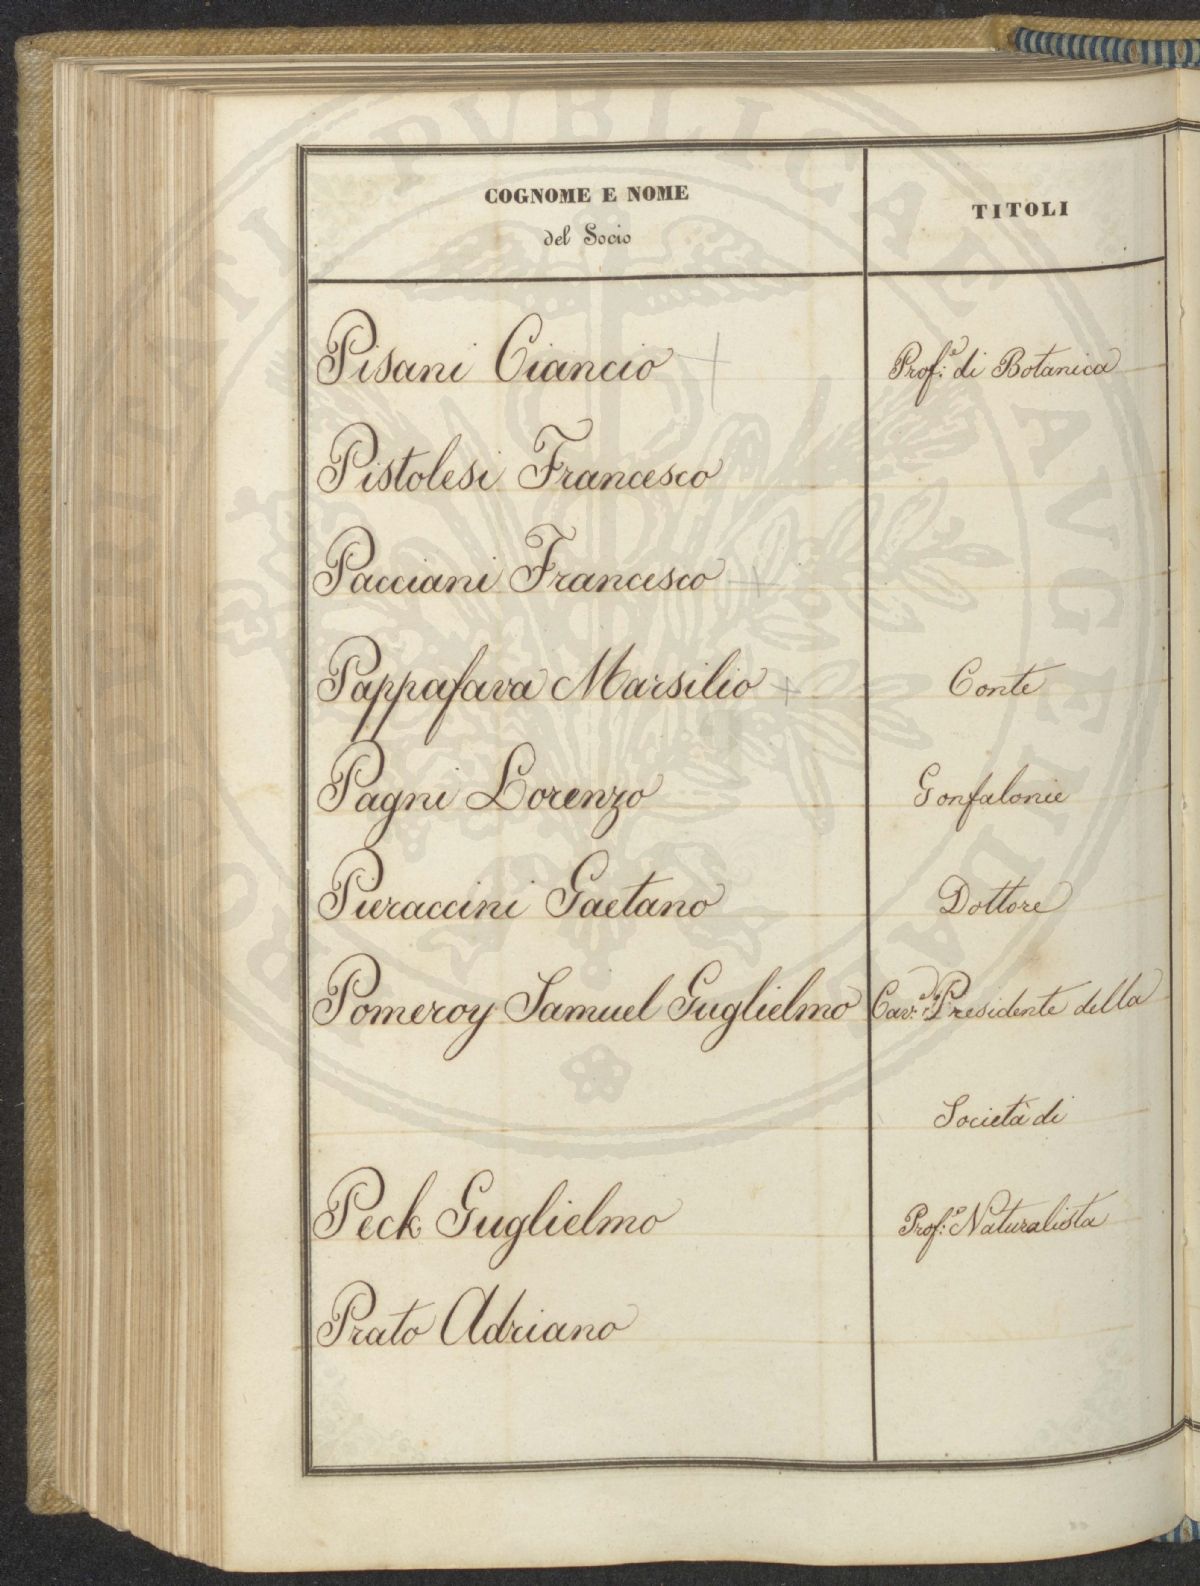 COGNOME E NOME
del Socio
TITOLI
Pisani Ciancio
Prof.e di Botanica
Pistolesi Francesco
Pacciani Francesco
Pappafava Marsilio
Conte
Pagni Lorenzo
Gonfalonie
Pieraccini Gaetano
Dottore
Pomeroy Samuel Guglielmo
Cav.e Presidente della
Società di
Peck Guglielmo
Prof.e Naturalista
Prato Adriano